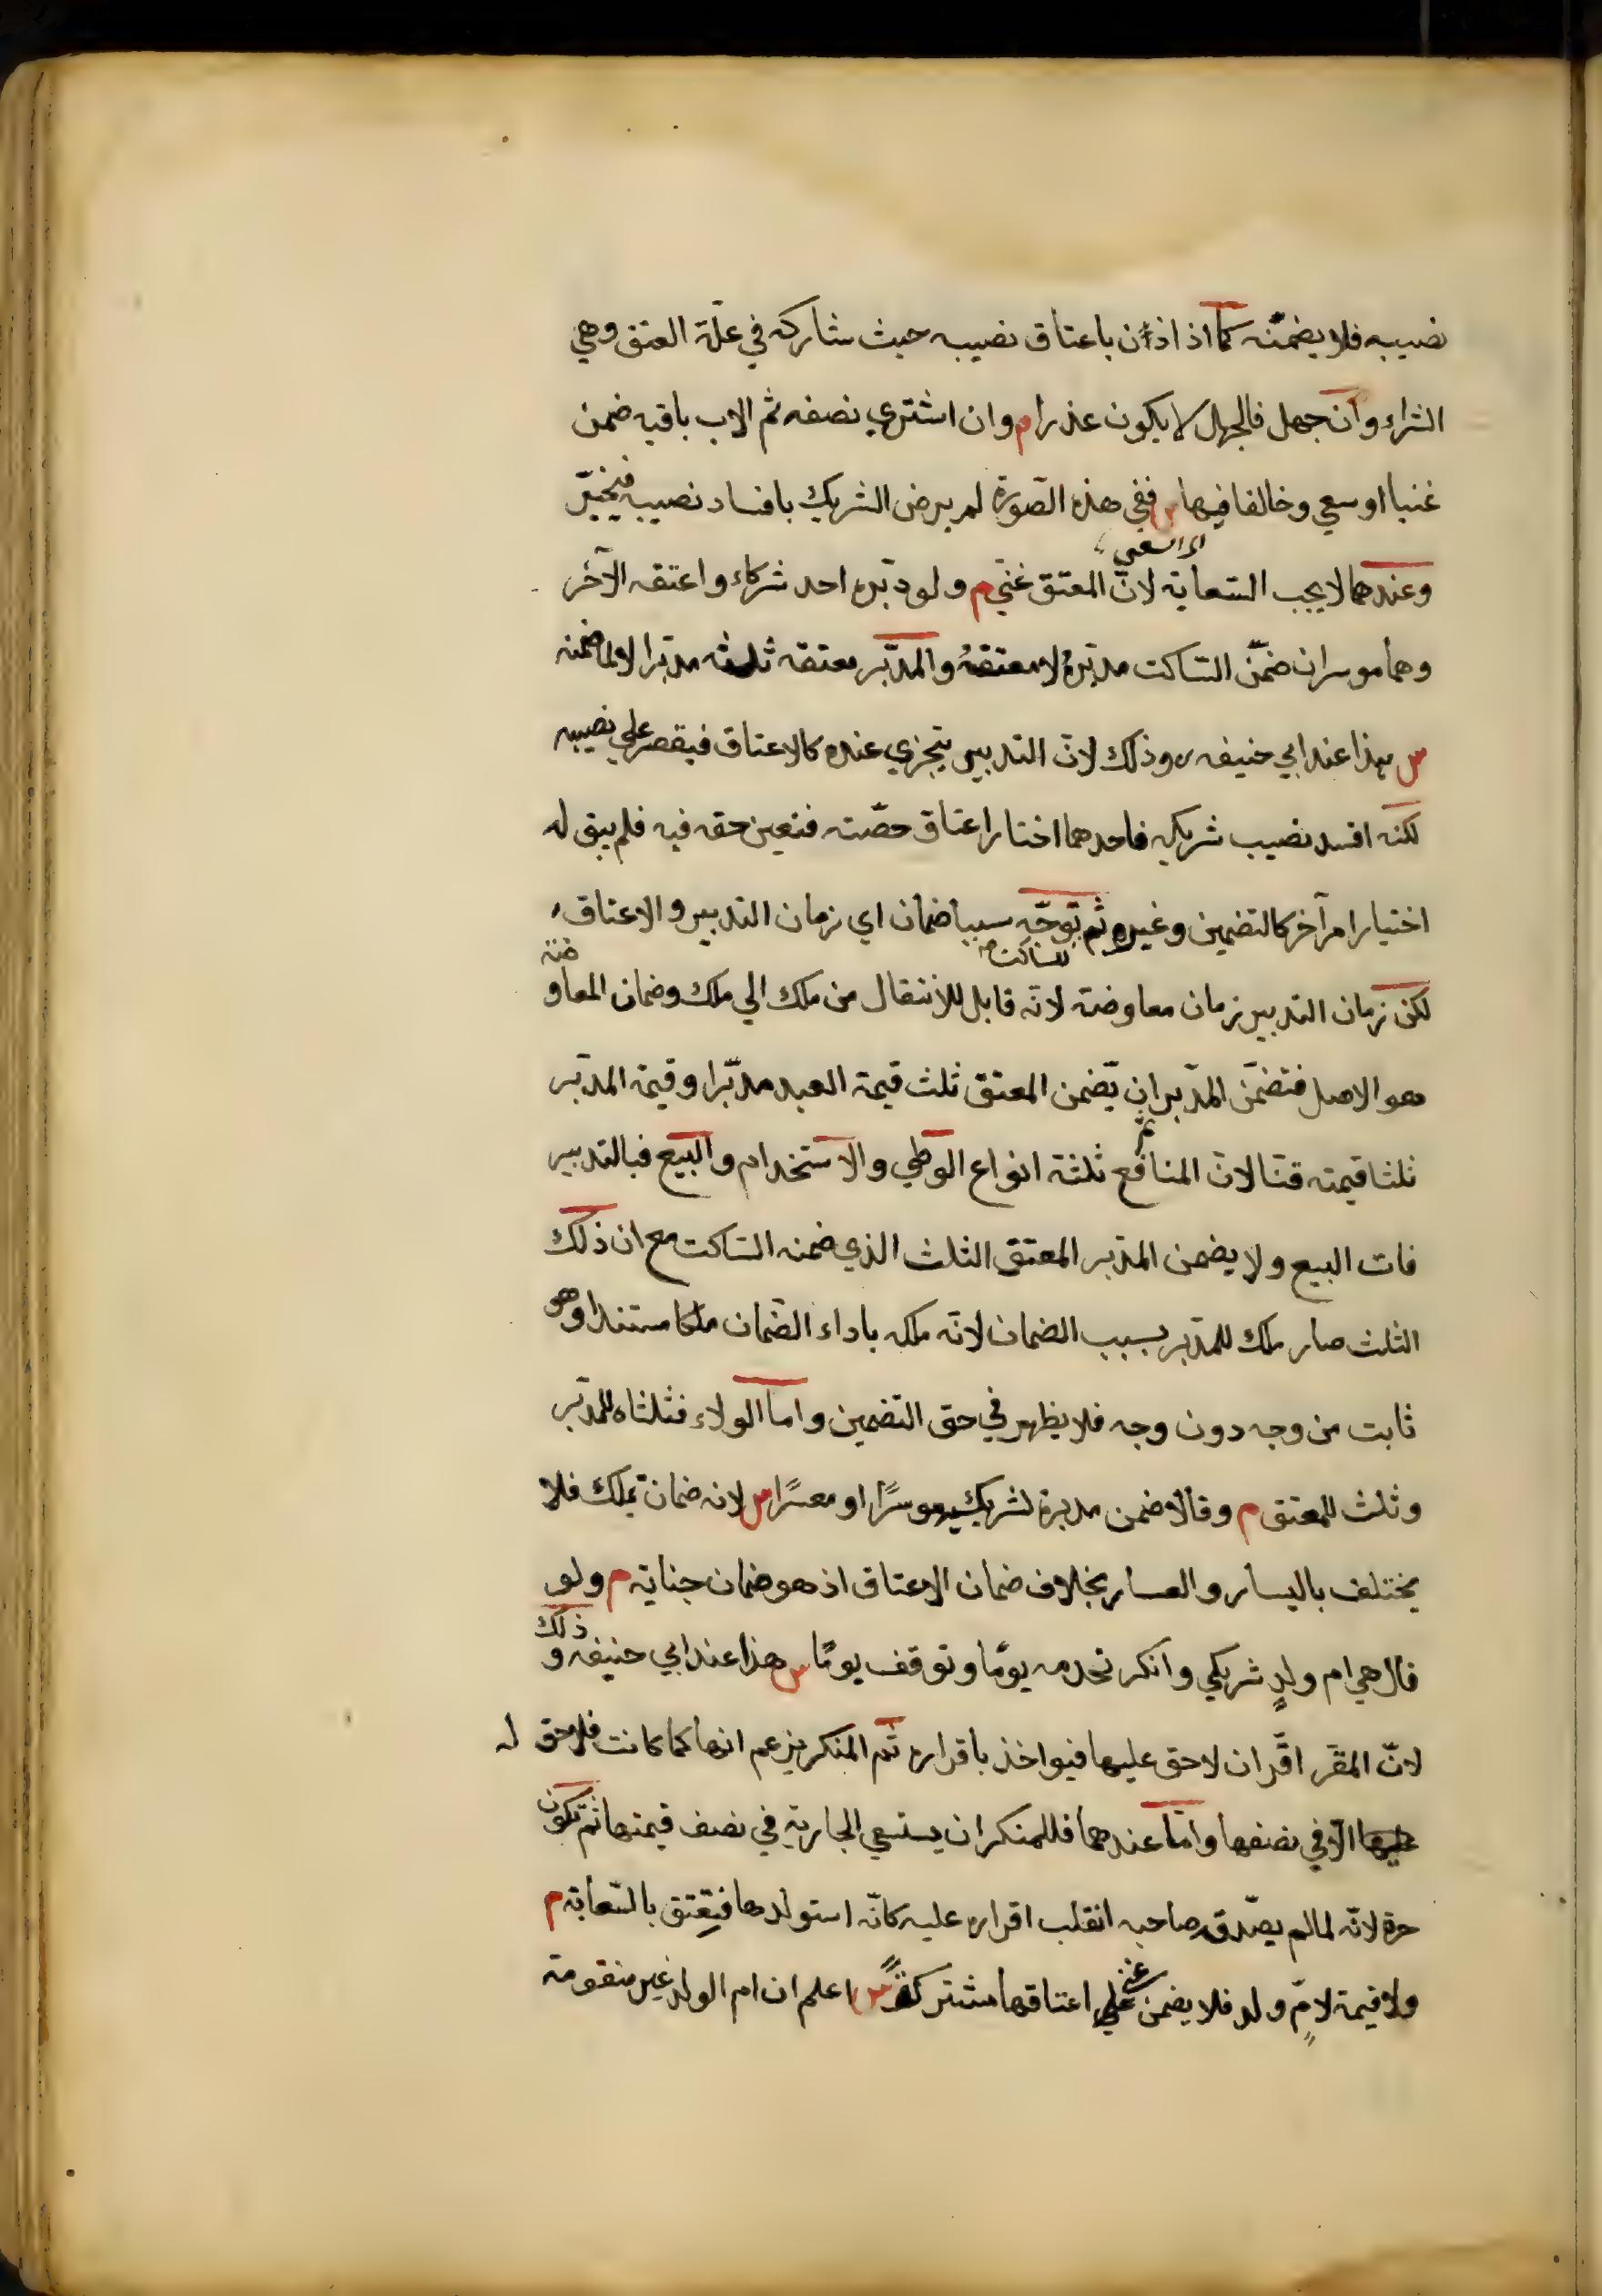 نصيبه فلا يضمنه كما اذا اذن باعتاق نصيبه حيث شاركه في علة العتق وهي
الشراء وان جهل فالجهل لا يكون عذرا م وان اشتري نصفه ثم الاب باقيه ضمن
غنيا او سعي وخالفا فيها س ففي هذه الصورة لم يرض الشريك بافساد نصيبه فيخير
اي السعي
وعندهما لا يجب السعاية لان المعتق غني م ولو دبره احد شركاء واعتقه الآخر
وهما موسران ضمن الساكت مدبره لا معتقه والمدبر معتقه ثلثه مدبرا لا لما ضمنه
س هذا عند ابي حنيفه وذلك لان التدبير يتجزي عنده كالاعتاق فيقصر علي نصيبه
لكنه افسد نصيب شريكه فاحدهما اختار اعتاق حصته فتعين حقه فيه فلم يبق له
اختيار امر آخر كالتضمين وغيره ثم توجه سببا ضمان اي زمان التدبير والاعتاق
للساكت
لكن زمان التدبير زمان معاوضة لانه قابل للانتقال من ملك الي ملك وضمان المعاوضة
هو الاصل فتضمن المدبر ان يضمن المعتق ثلث قيمة العبد مدبرا وقيمة المدبر
ثلثا قيمته قنا لان المنافع ثلثة انواع الوطي والاستخدام والبيع فبالتدبير
فات البيع ولا يضمن المدبر المعتق الثلث الذي ضمنه الساكت مع ان ذلك
الثلث صار ملك للمدبر بسبب الضمان لانه ملكه باداء الضمان ملكا مستندا وهو
ثابت من وجه دون وجه فلا يظهر في حق التضمين واما الولاء فثلثاه للمدبر
وثلث للمعتق م وقالا ضمن مدبره لشريكيه موسرًا او معسرًا س لانه ضمان تملك فلا
يختلف باليسار والعسار بخلاف ضمان الاعتاق اذ هو ضمان جناية م ولو
قال هي ام ولدٍ شريكي وانكر تخدمه يومًا وتوقف يومًا س هذا عند ابي حنيفه و ذلك
لان المقر اقر ان لا حق عليها فيواخذ باقراره ثم المنكر يزعم انها كما كانت فلا حق له
عليها الا في نصفها واما عندهما فللمنكر ان يستسعي الجارية في نصف قيمتها ثم تكون
حرة لانه لما لم يصدق صاحبه انقلب اقراره عليه كانه استولدها فتعتق بالسعاية م
ولا قيمة لامّ ولد فلا يضمن غني اعتاقها مشتركةً س اعلم ان ام الولد غير متقومة